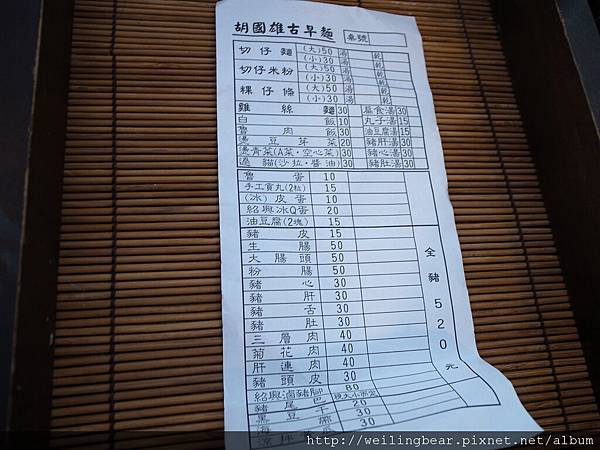 胡國雄古早麵 桌號
切仔麵 (大)50 湯 乾
(小)30 湯 乾
切仔米粉 (大)50 湯 乾
(小)30 湯 乾
粿仔條 (大)50 湯 乾
(小)30 湯 乾
雞絲麵 30 扁食湯 30
白飯 10 丸子湯 15
魯肉飯 30 油豆腐湯 15
燙豆芽菜 20 豬肝湯 30
燙青菜(A菜·空心菜) 30 豬心湯 30
過貓(沙拉·醬油) 30 豬肚湯 30
魯蛋 10
手工貢丸(2粒) 15
(冰)皮蛋 10
紹興冰Q蛋 20
油豆腐(2塊) 15
豬皮 15
生腸 50
大腸頭 50
粉腸 50
豬心 30
豬肝 30
豬舌 30
豬肚 30
三層肉 40
菊花肉 40
肝連肉 40
豬頭皮 30
紹興滷豬腳 80
豬尾巴 視大小而定
黑豆干 20
海帶 30
涼拌瓜 30
全豬520元
http://weilingbear.pixnet.net/album